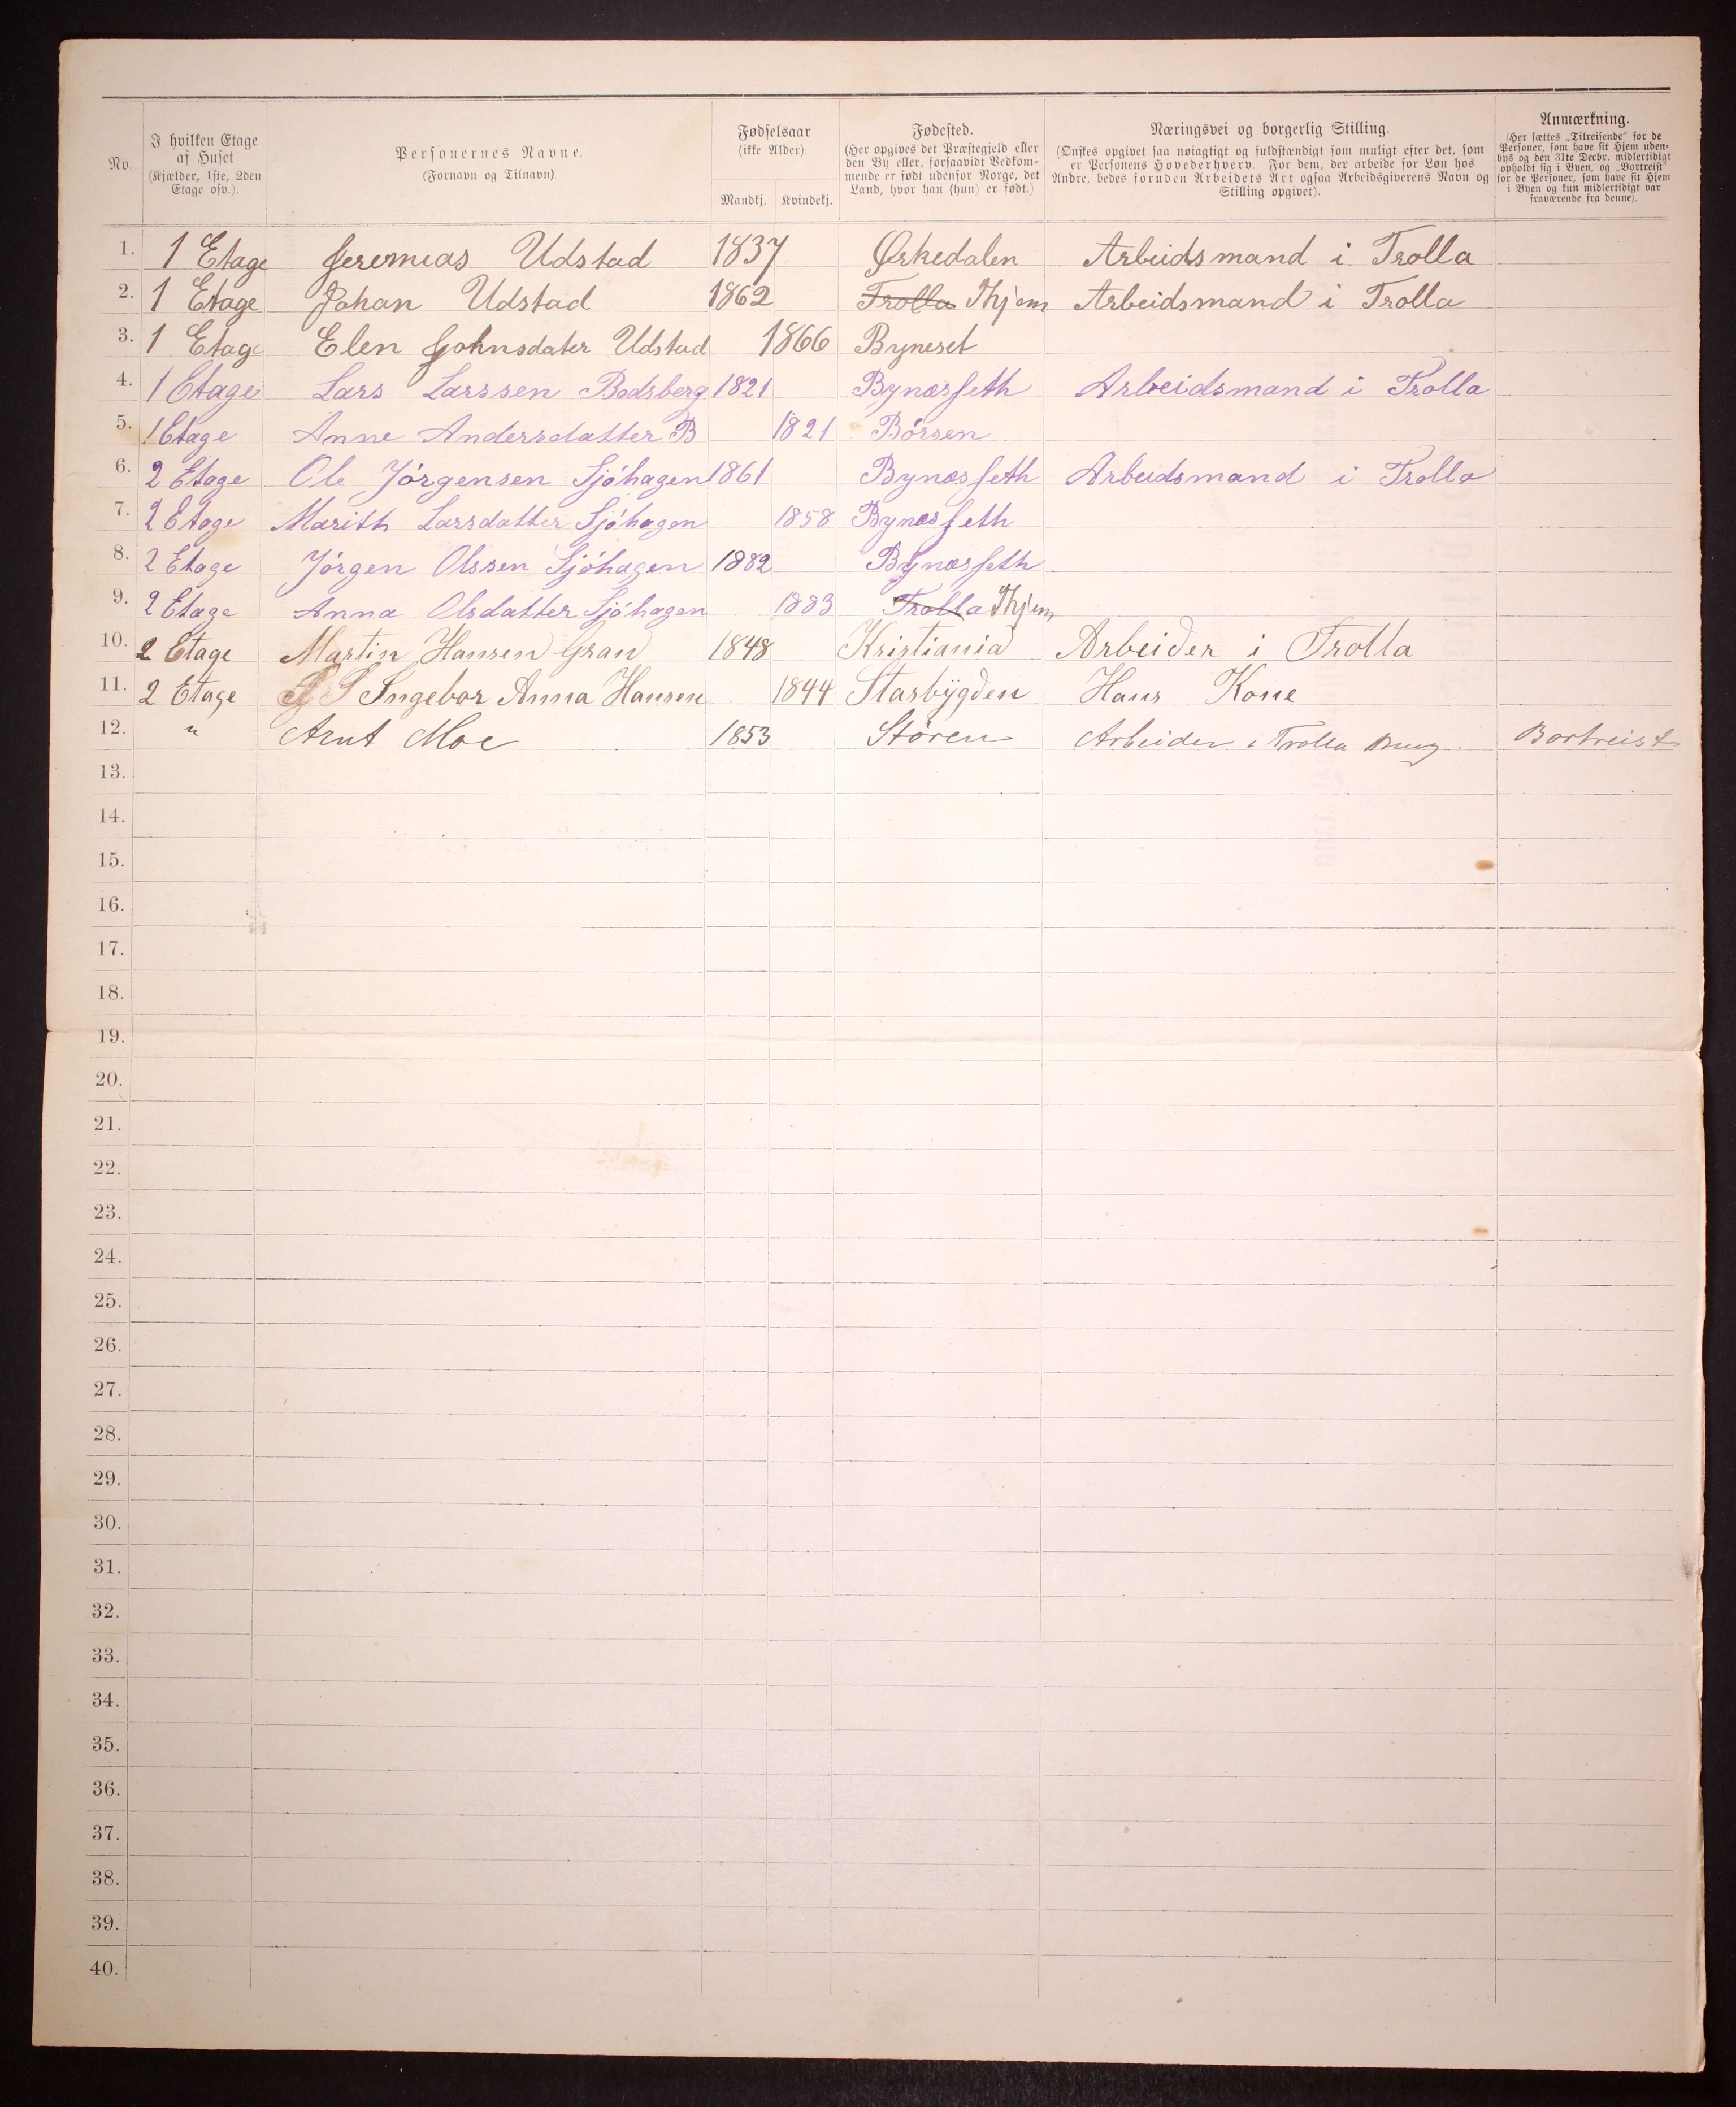 No.
I hvilken Etage
af Huset
(Kjælder, 1ste, 2den
Etage osv.).
Personernes Navne.
(Fornavn og Tilnavn)
Fødselsaar
(ikke Alder).
Mandkj. Kvindekj.
Fødested.
(Her opgives det Præstegjeld eller
den By eller, forsaavidt Vedkom-
mende er født udenfor Norge, det
Land, hvor han (hun) er født.)
Næringsvei og borgerlig Stilling.
(Ønskes opgivet saa nøiagtigt og fuldstændigt som muligt efter det, som
er Personens Hovederhverv. For dem, der arbeide for Løn hos
Andre, bedes foruden Arbeidets Art ogsaa Arbeidsgiverens Navn og
Stilling opgivet).
Anmærkning.
(Her sættes „Tilreisende” for de
Personer, som have sit Hjem uden-
bys og den 31te Decbr. midlertidigt
opholdt sig i Byen, og „Bortreist”
for de Personer, som have sit Hjem
i Byen og kun midlertidigt var
fraværende fra denne).
1. 1 Etage Jeremias Udstad 1837 Ørkedalen Arbeidsmand i Trolla
2. 1 Etage Johan Udstad 1862 Trolla Thjem Arbeidsmand i Trolla
3. 1 Etage Elen Johnsdater Udstad 1866 Byneset
4. 1 Etage Lars Larssen Bodsberg 1821 Bynæsseth Arbeidsmand i Trolla
5. 1 Etage Anne Andersdatter B 1821 Börsen
6. 2 Etage Ole Jörgensen Sjöhagen 1861 Bynæsseth Arbeidsmand i Trolla
7. 2 Etage Marith Larsdatter Sjöhagen 1858 Bynæsseth
8. 2 Etage Jörgen Olssen Sjöhagen 1882 Bynæsseth
9. 2 Etage Anna Olsdatter Sjöhagen 1883 Trolla Thjem
10. 2 Etage Martin Hansen Gran 1848 Kristiania Arbeider i Trolla
11. 2 Etage Ingebor Anna Hansen 1844 Starbygden Hans Kone
12. " Arnt Moe 1853 Støren Arbeider i Trolla Brug Bortreist
13.
14.
15.
16.
17.
18.
19.
20.
21.
22.
23.
24.
25.
26.
27.
28.
29.
30.
31.
32.
33.
34.
35.
36.
37.
38.
39.
40.